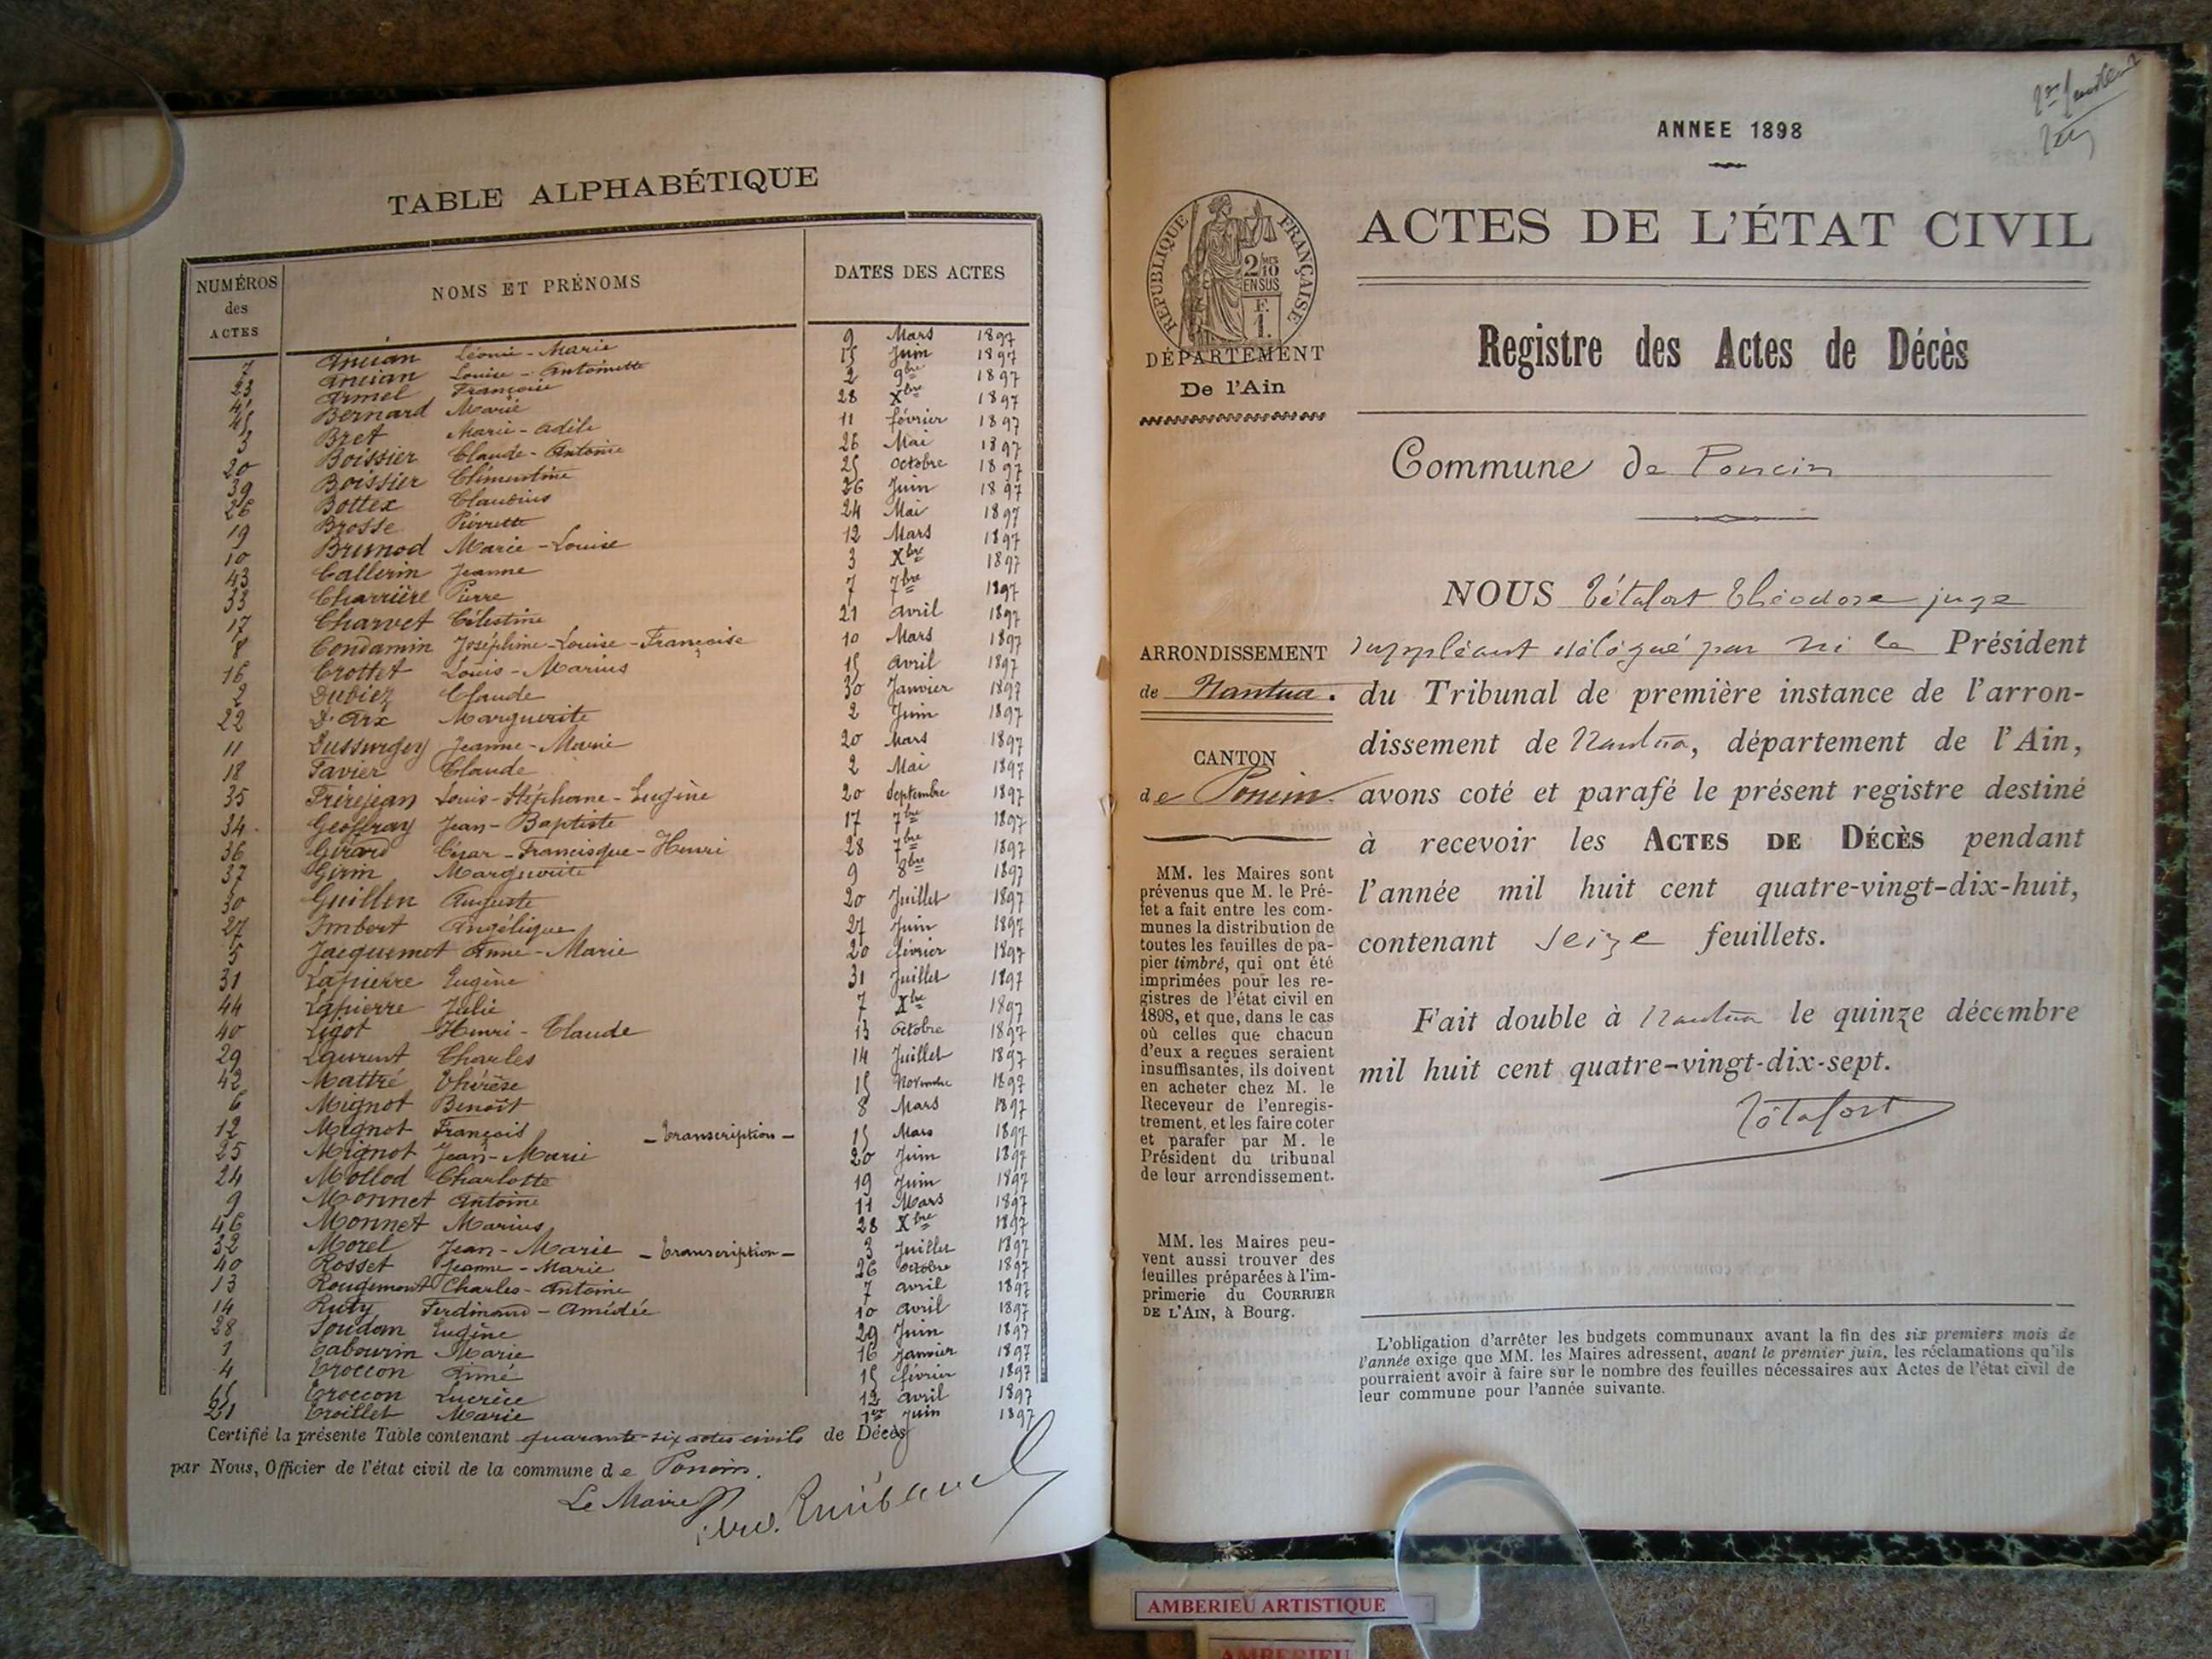 TABLE ALPHABÉTIQUE
NUMÉROS des ACTES
NOMS ET PRÉNOMS
DATES DES ACTES
7 Ancian Léonie-Marie 9 Mars 1897
23 Ancian Louise-Antoinette 15 Juin 1897
41 Armel Françoise 2 9bre 1897
45 Bernard Marie 28 Xbre 1897
3 Bret Marie-Adèle 11 février 1897
20 Boissier Claude-Antoine 26 Mai 1897
39 Boissier Clémentine 25 octobre 1897
26 Bottex Claudius 26 Juin 1897
19 Brosse Pierrette 24 Mai 1897
10 Brunod Marie-Louise 12 Mars 1897
43 Callerin Jeanne 3 Xbre 1897
33 Charrière Pierre 7 7bre 1897
17 Charvet Célestine 21 avril 1897
8 Condamin Joséphine-Louise-Françoise 10 Mars 1897
16 Crottet Louis-Marius 15 avril 1897
2 Dubiez Claude 30 Janvier 1897
22 D'Aix Marguerite 2 Juin 1897
11 Dussurgey Jeanne-Marie 20 Mars 1897
18 Favier Claude 2 Mai 1897
35 Frèrejean Louis-Stéphane-Eugène 20 Septembre 1897
34 Geoffray Jean-Baptiste 17 7bre 1897
36 Girard César-Francisque-Henri 28 7bre 1897
37 Girin Marguerite 9 8bre 1897
30 Guillen Auguste 20 Juillet 1897
27 Imbert Angélique 27 Juin 1897
5 Jacquemet Anne-Marie 20 février 1897
31 Lapierre Eugène 31 Juillet 1897
44 Lapierre Julie 7 Xbre 1897
40 Ligot Henri-Claude 13 Octobre 1897
29 Laurent Charles 14 Juillet 1897
42 Mattré Thérèse 15 Novembre 1897
6 Mignot Benoît 8 Mars 1897
12 Mignot François - transcription - 15 Mars 1897
25 Mignot Jean-Marie 20 Juin 1897
24 Mollod Charlotte 19 Juin 1897
9 Monnet Antoine 11 Mars 1897
46 Monnet Marius 28 Xbre 1897
32 Morel Jean-Marie - transcription - 3 Juillet 1897
40 Rosset Jeanne-Marie 26 Octobre 1897
13 Rougemont Charles-Antoine 7 avril 1897
14 Ruty Ferdinand-Amédée 10 avril 1897
28 Soudan Eugène 29 Juin 1897
1 Tabourin Marie 16 Janvier 1897
4 Troccon Aimé 15 février 1897
15 Troccon Lucrèce 12 avril 1897
21 Troillet Marie 1er Juin 1897
Certifié la présente Table contenant quarante-six actes civils de Décès
par Nous, Officier de l'état civil de la commune de Poncin.
Le Maire
ANNEE 1898
REPUBLIQUE FRANÇAISE
2/10 MES
EN SUS
F.
1.
ACTES DE L'ÉTAT CIVIL
DÉPARTEMENT
De l'Ain
Registre des Actes de Décès
Commune de Poncin
ARRONDISSEMENT
de Nantua.
CANTON
de Poncin
MM. les Maires sont
prévenus que M. le Pré-
fet a fait entre les com-
munes la distribution de
toutes les feuilles de pa-
pier timbré, qui ont été
imprimées pour les re-
gistres de l'état civil en
1898, et que, dans le cas
où celles que chacun
d'eux a reçues seraient
insuffisantes, ils doivent
en acheter chez M. le
Receveur de l'enregis-
trement, et les faire coter
et parafer par M. le
Président du tribunal
de leur arrondissement.
MM. les Maires peu-
vent aussi trouver des
feuilles préparées à l'im-
primerie du COURRIER
DE L'AIN, à Bourg.
NOUS Tétafort Théodore juge
suppléant délégué par Mr le Président
du Tribunal de première instance de l'arron-
dissement de Nantua, département de l'Ain,
avons coté et parafé le présent registre destiné
à recevoir les ACTES DE DÉCÈS pendant
l'année mil huit cent quatre-vingt-dix-huit,
contenant seize feuillets.
Fait double à Nantua le quinze décembre
mil huit cent quatre-vingt-dix-sept.
Tétafort
L'obligation d'arrêter les budgets communaux avant la fin des six premiers mois de
l'année exige que MM. les Maires adressent, avant le premier juin, les réclamations qu'ils
pourraient avoir à faire sur le nombre des feuilles nécessaires aux Actes de l'état civil de
leur commune pour l'année suivante.
AMBERIEU ARTISTIQUE
AMBERIEU